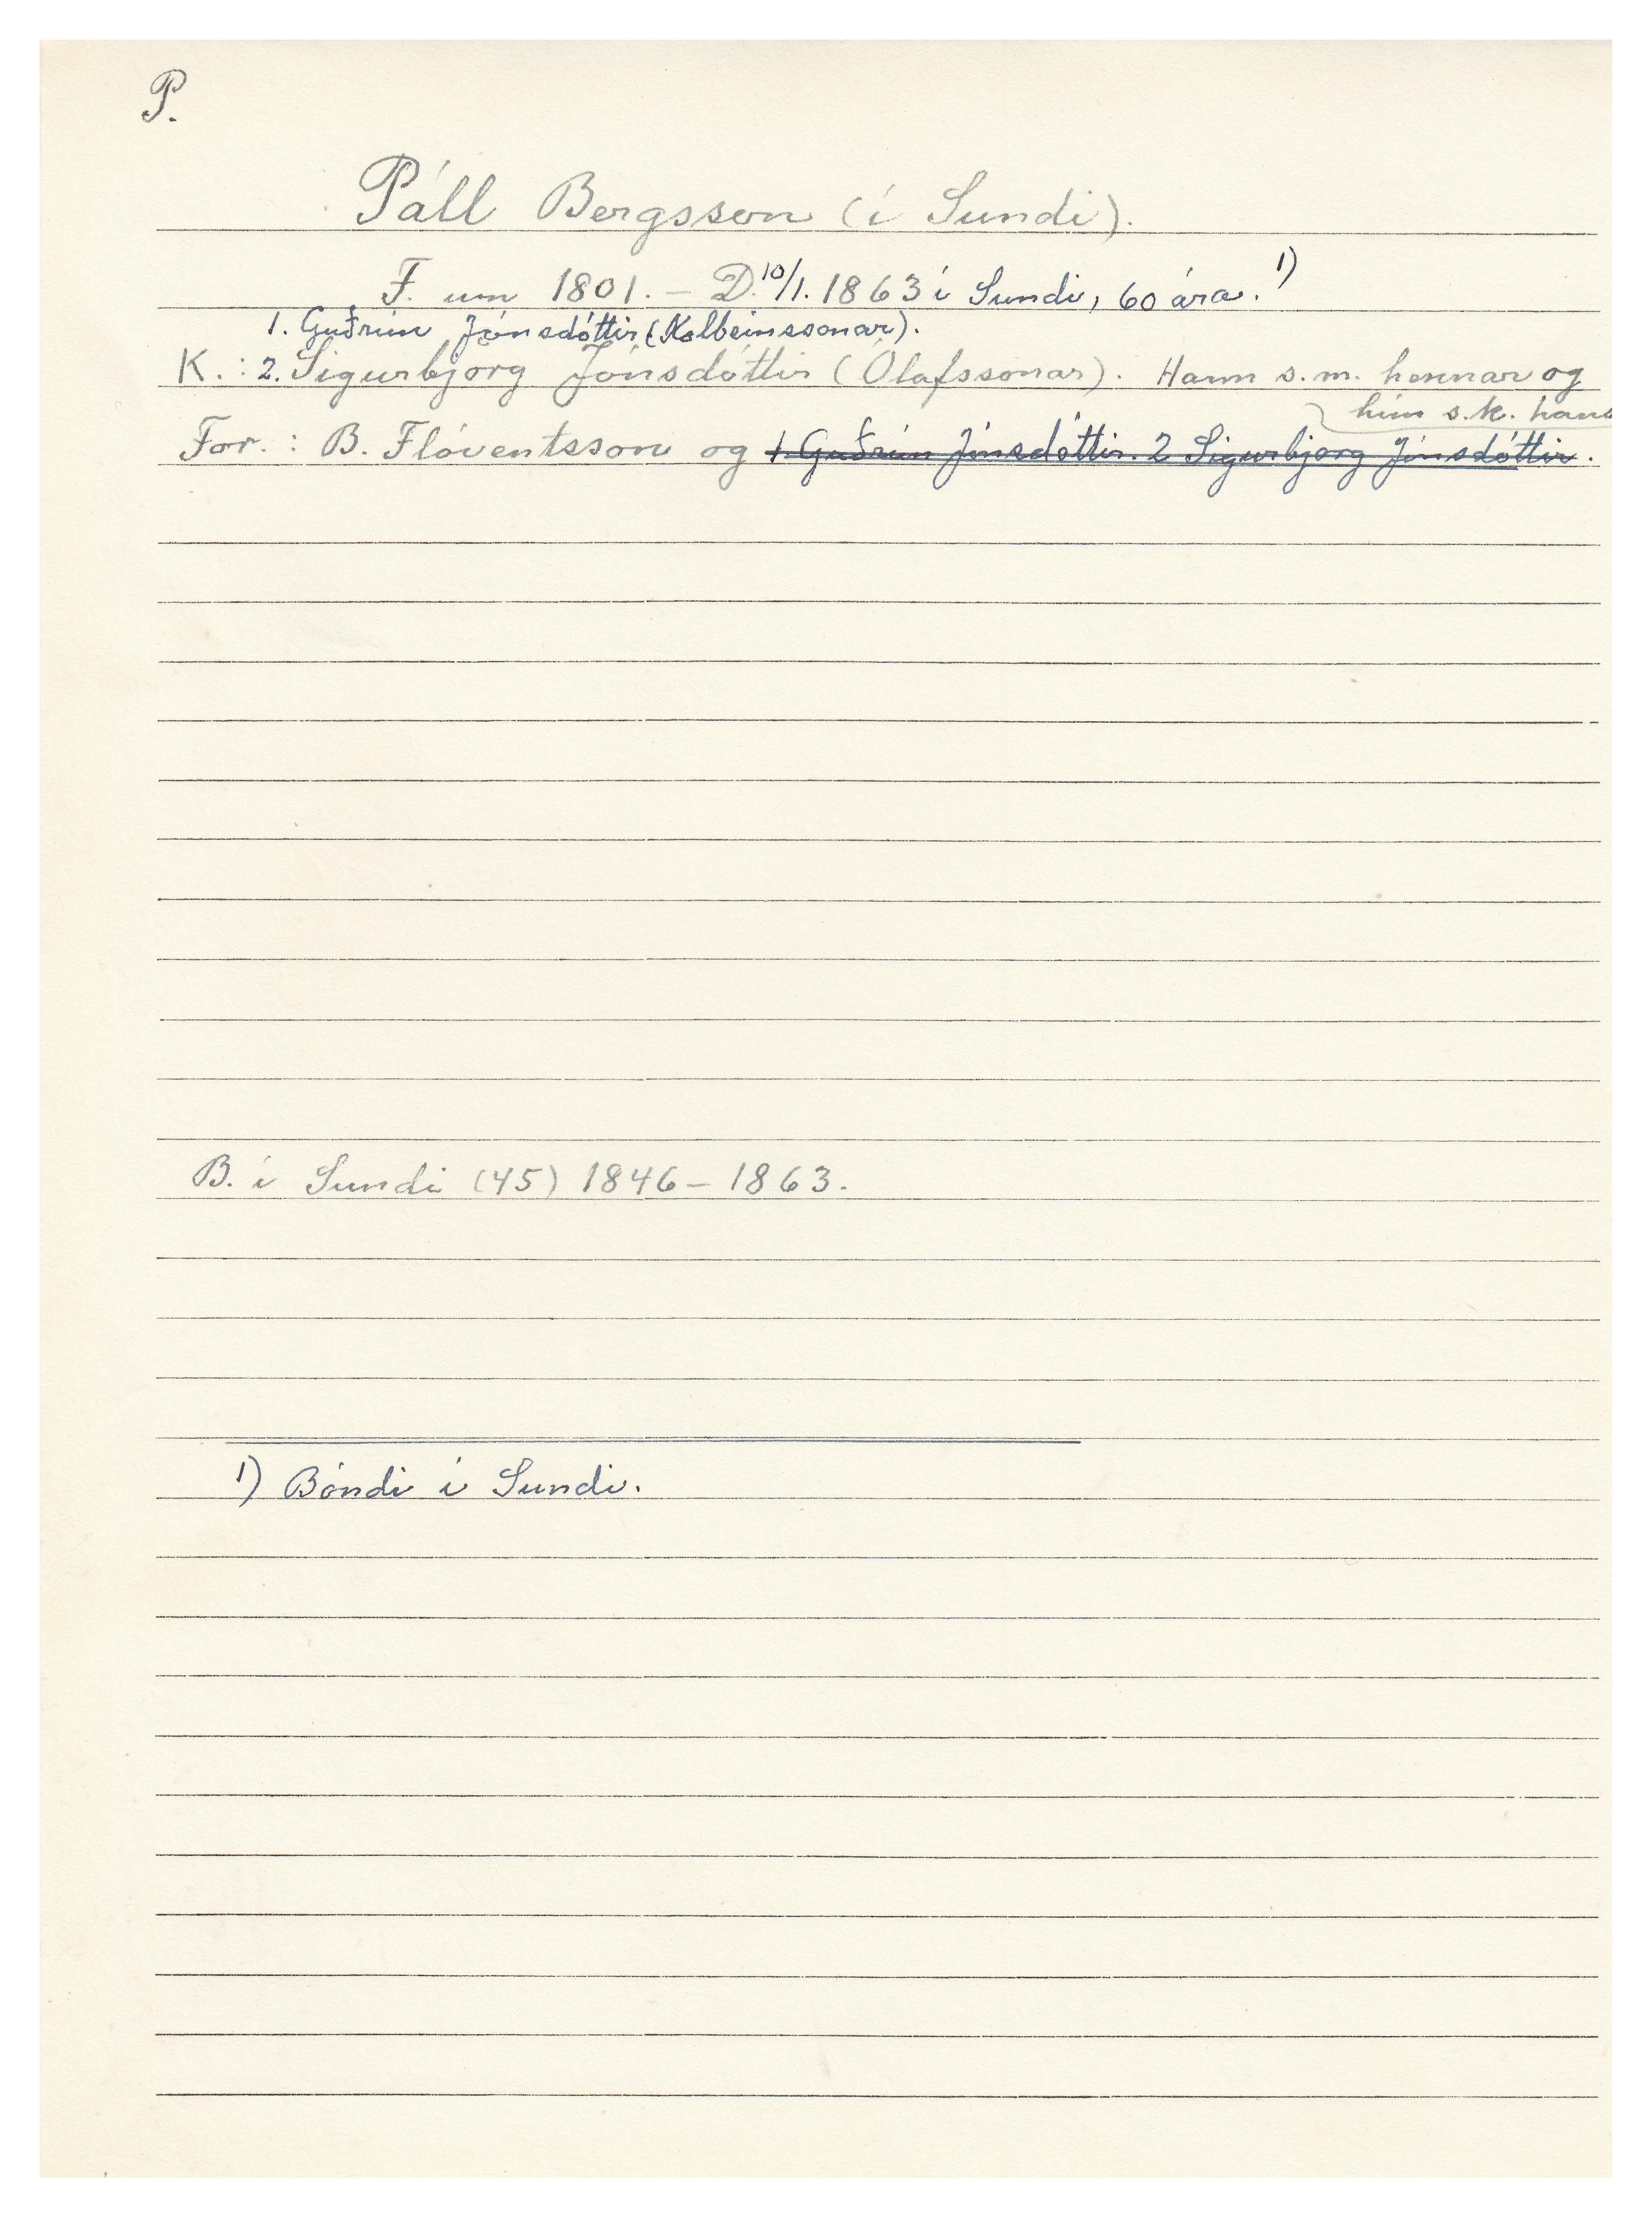 P.
Páll Bergsson (í Sundi).
F. um 1801. – D. 10/1. 1863 í Sundi, 60 ára. 1)
1. Guðrún Jónsdóttir (Kolbeinssonar).
K. : 2. Sigurbjörg Jónsdóttir (Ólafssonar). Hann s.m. hennar og
hún s.k. hans
For. : B. Flóventsson og 1. Guðrún Jónsdóttir. 2 Sigurbjorg Jónsdóttir.
B. í Sundi (45) 1846 – 1863.
1) Bóndi í Sundi.